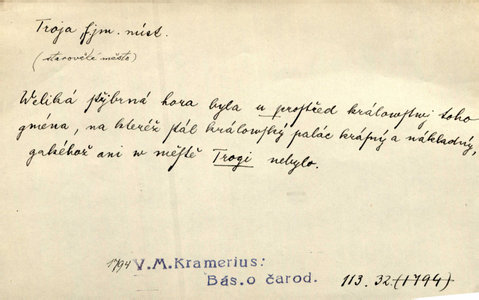 Troja fjm. míst.
(starověké město)
Weliká stýbrná hora byla u prostřed králowstwj toho
gména, na kteréž stál králowský palác krásný a nákladný,
gakéhož ani w městě Trogi nebylo.
1794 V.M.Kramerius:
Bás.o čarod. 113. 32. (1794)